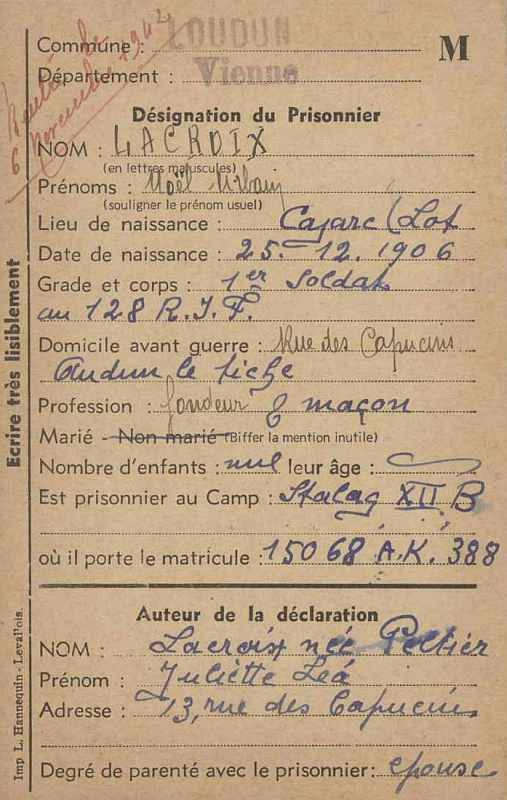 Commune : LOUDUN
M
Département : Vienne
6 novembre 1942
Désignation du Prisonnier
NOM : LACROIX
(en lettres majuscules)
Prénoms : Noël Urbain
(souligner le prénom usuel)
Lieu de naissance : Cajarc (Lot
Date de naissance : 25. 12. 1906
Grade et corps : 1er Soldat
au 128 R.I.F.
Domicile avant guerre : Rue des Capucins
Audun le Tiche
Profession : fondeur & maçon
Marié - Non marié (Biffer la mention inutile)
Nombre d'enfants : nul leur âge :
Est prisonnier au Camp : Stalag XII B
où il porte le matricule : 15068 A.K. 388
Auteur de la déclaration
NOM : Lacroix née Peltier
Prénom : Juliette Léa
Adresse : 73, rue des Capucins
Degré de parenté avec le prisonnier : épouse
Ecrire très lisiblement
Imp L. Hannequin - Levallois.